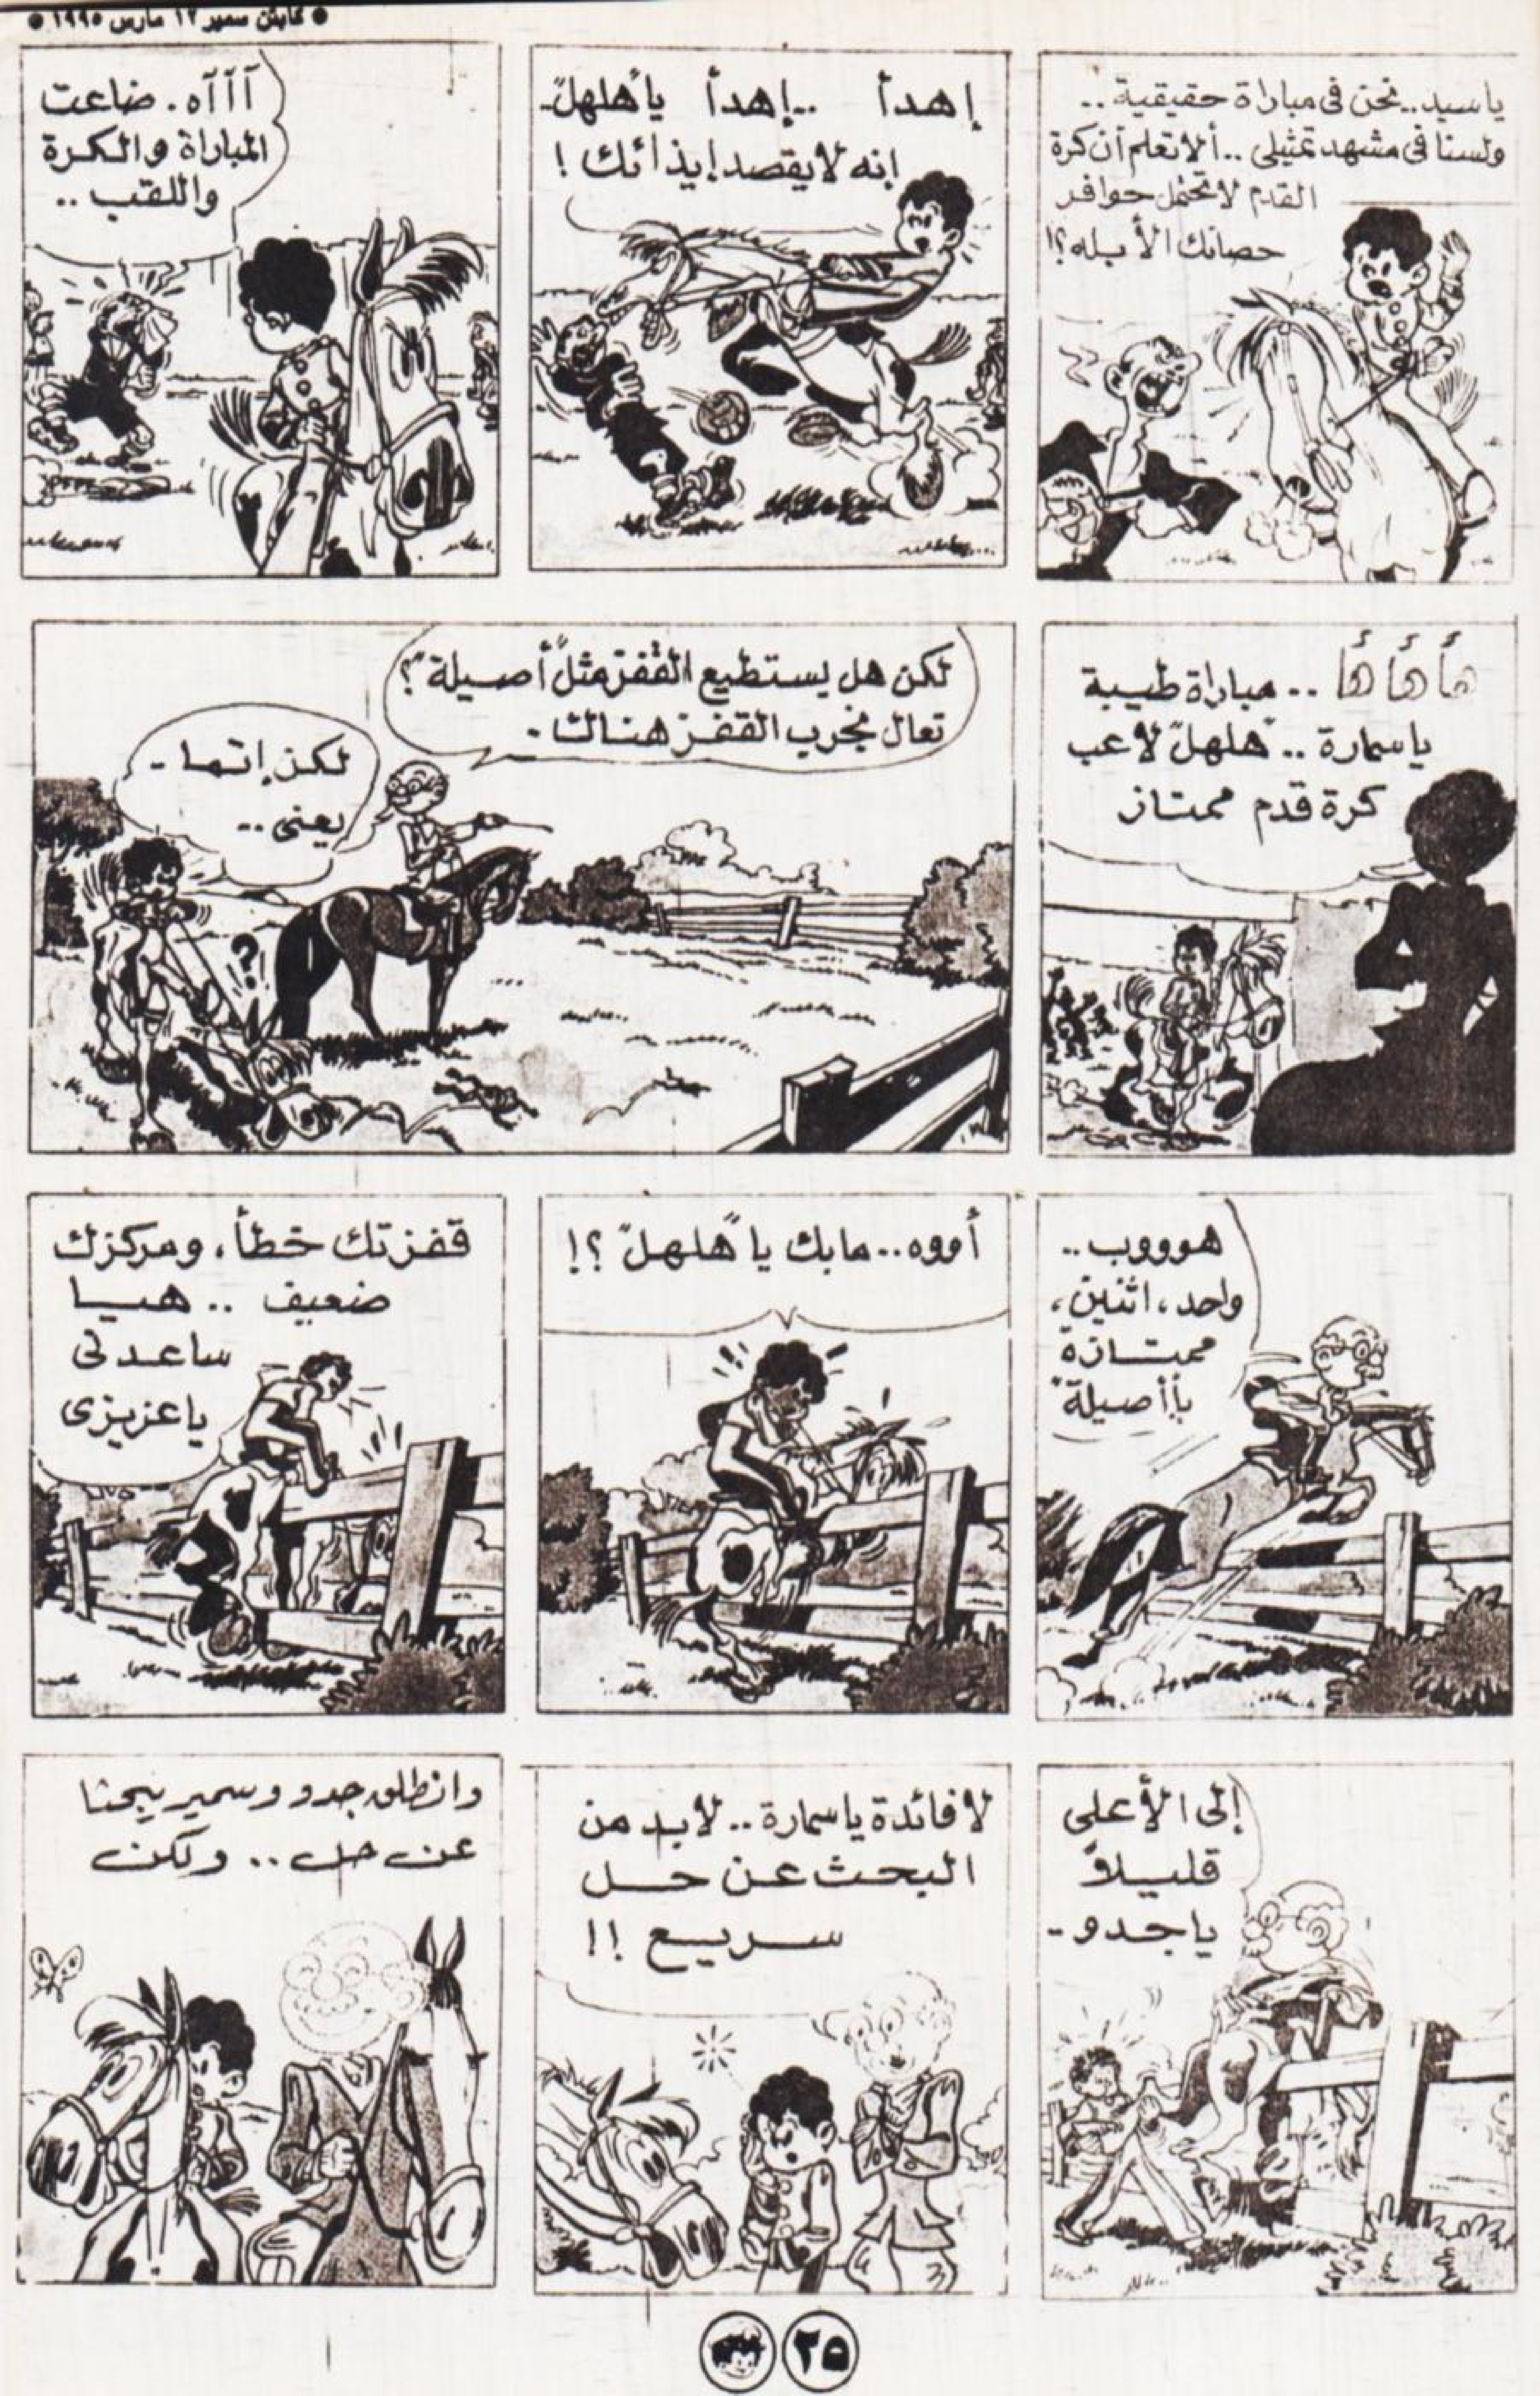 ● كابتن سمير ١٢ مارس ١٩٩٥ ●
يا سيد.. نحن فى مباراة حقيقية..
ولسنا فى مشهد تمثيلى.. ألا تعلم أن كرة
القدم لا تحتمل حوافر
حصانك الأبله؟!
إهدأ ..إهدأ يا"هلهل"
إنه لا يقصد إيذائك!
آآآه. ضاعت
المباراة والكرة
واللقب ..
هأ هأ هأ .. مباراة طيبة
يا سمارة .. "هلهل" لاعب
كرة قدم ممتاز
لكن هل يستطيع القفز مثل "أصيلة"؟
تعال نجرب القفز هنالك.
لكن إنها.
يعنى ..
هوووب ..
واحد، اثنين،
ممتازة
يا"أصيلة"
أووه.. مابك يا "هلهل" ؟!
قفزتك خطأ، ومركزك
ضعيف .. هيا
ساعدنى
يا عزيزى
إلى الأعلى
قليلاً
يا جدو.
لا فائدة يا سمارة .. لابد من
البحث عن حل
سريع !!
وانطلق جدو وسمير يبحثا
عن حل .. ولكن
٢٥